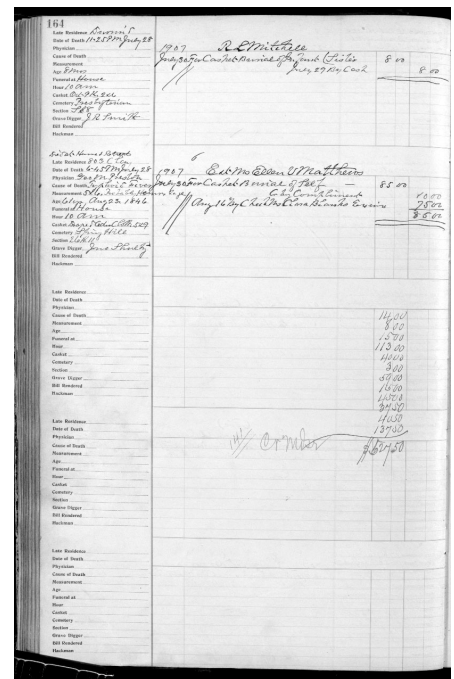 164
Late Residence
Date of Death 11-25 PM July 28
Physician
Cause of Death
Measurement
Age 8 mos
Funeral at House
Hour 10 am
Casket
Cemetery Presbyterian
Section
Grave Digger J R Smith
Bill Rendered
Hackman
1907 R L Mitchell
July 30 For Casket Burial of Infant 8 00
July 29 By Cash 8 00
Late Residence 803 Clay
Date of Death 6-45 PM July 28
Physician
Cause of Death Typhoid Fever
Measurement
Age 61 yr Aug 23, 1846
Funeral at House
Hour 10 am
Casket
Cemetery Spring Hill
Section
Grave Digger Jno
Bill Rendered
Hackman
1907 Est Mrs Ellen V Matthews
July 30 For Casket Burial of Self 85 00
10 00
Aug 16 By Check Mrs Clara 75 00
85 00
Late Residence
Date of Death
Physician
Cause of Death
Measurement
Age
Funeral at
Hour
Casket
Cemetery
Section
Grave Digger
Bill Rendered
Hackman
14 00
8 00
15 00
113 00
40 00
3 00
16 00
45 00
37 50
40 50
137 50
Late Residence
Date of Death
Physician
Cause of Death
Measurement
Age
Funeral at
Hour
Casket
Cemetery
Section
Grave Digger
Bill Rendered
Hackman
Late Residence
Date of Death
Physician
Cause of Death
Measurement
Age
Funeral at
Hour
Casket
Cemetery
Section
Grave Digger
Bill Rendered
Hackman